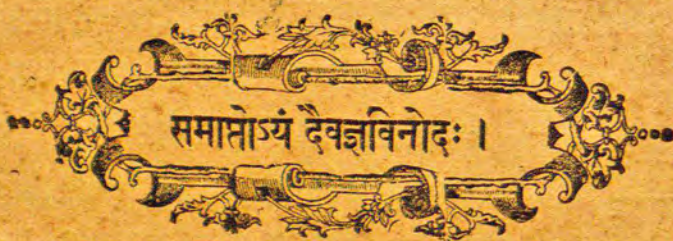 समाप्तोऽयं दैवज्ञविनोदः ।